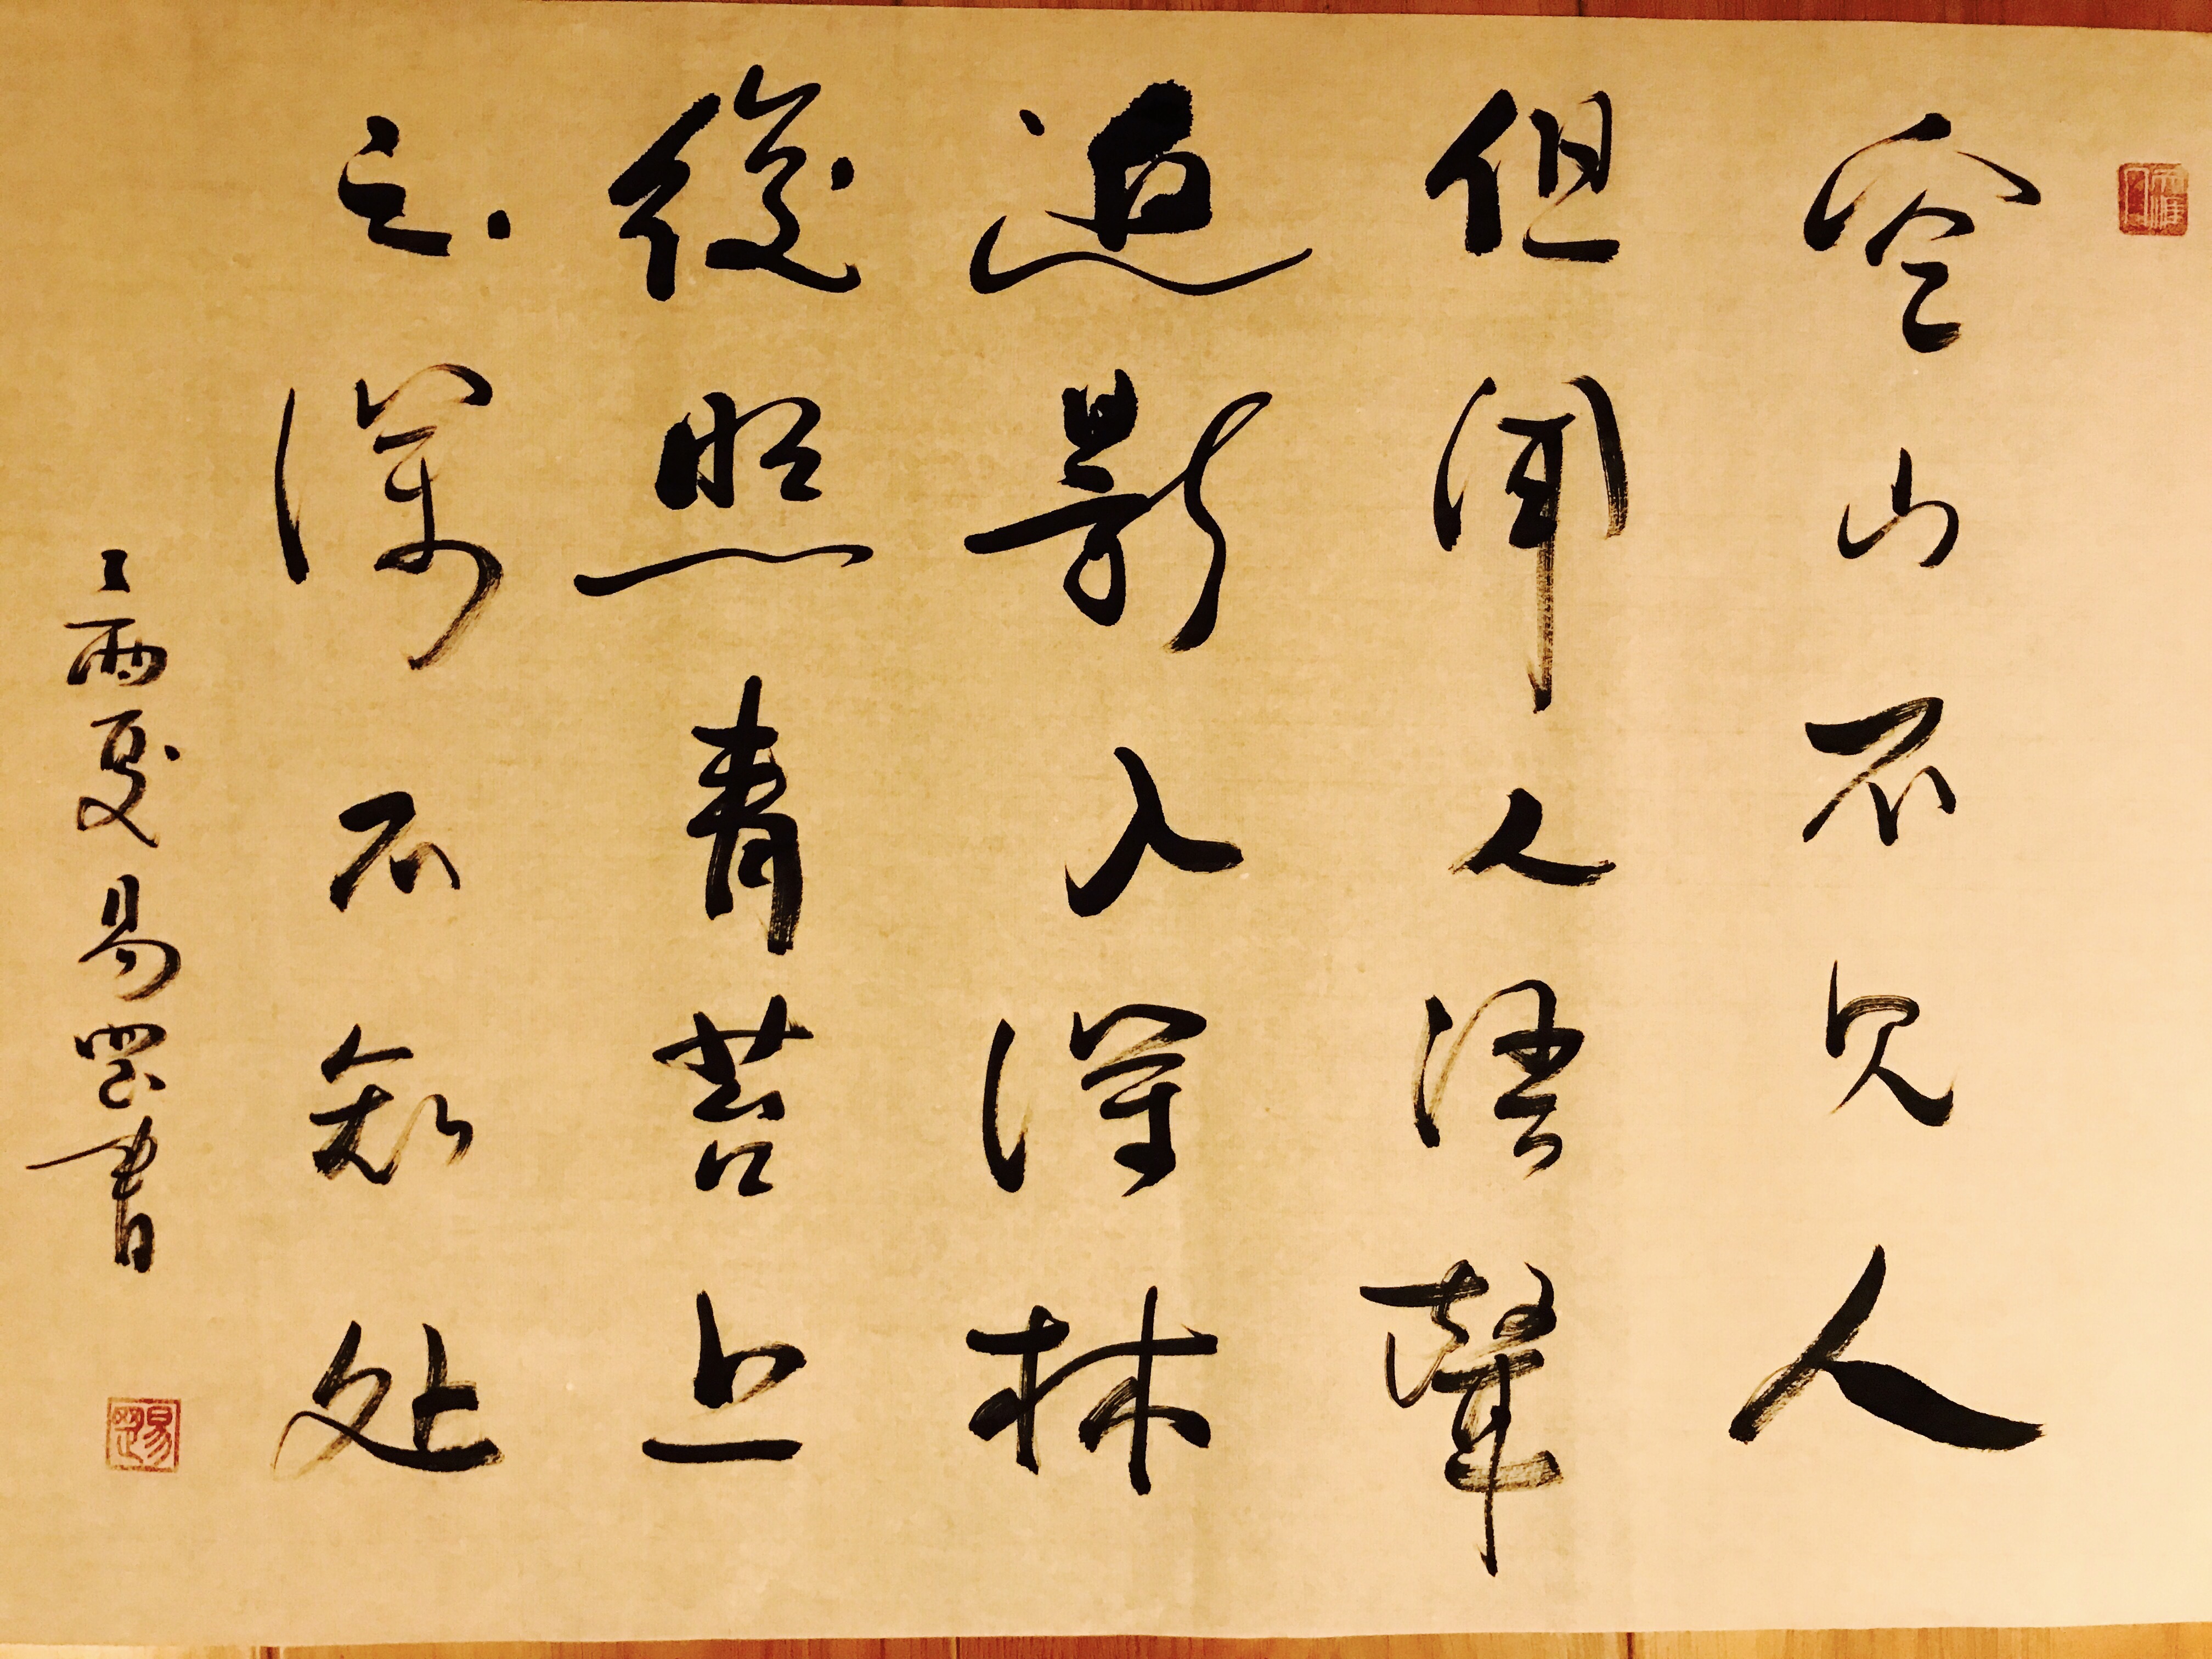 空山不見人
但聞人語聲
返影入深林
復照青苔上
云深不知处
夏易書